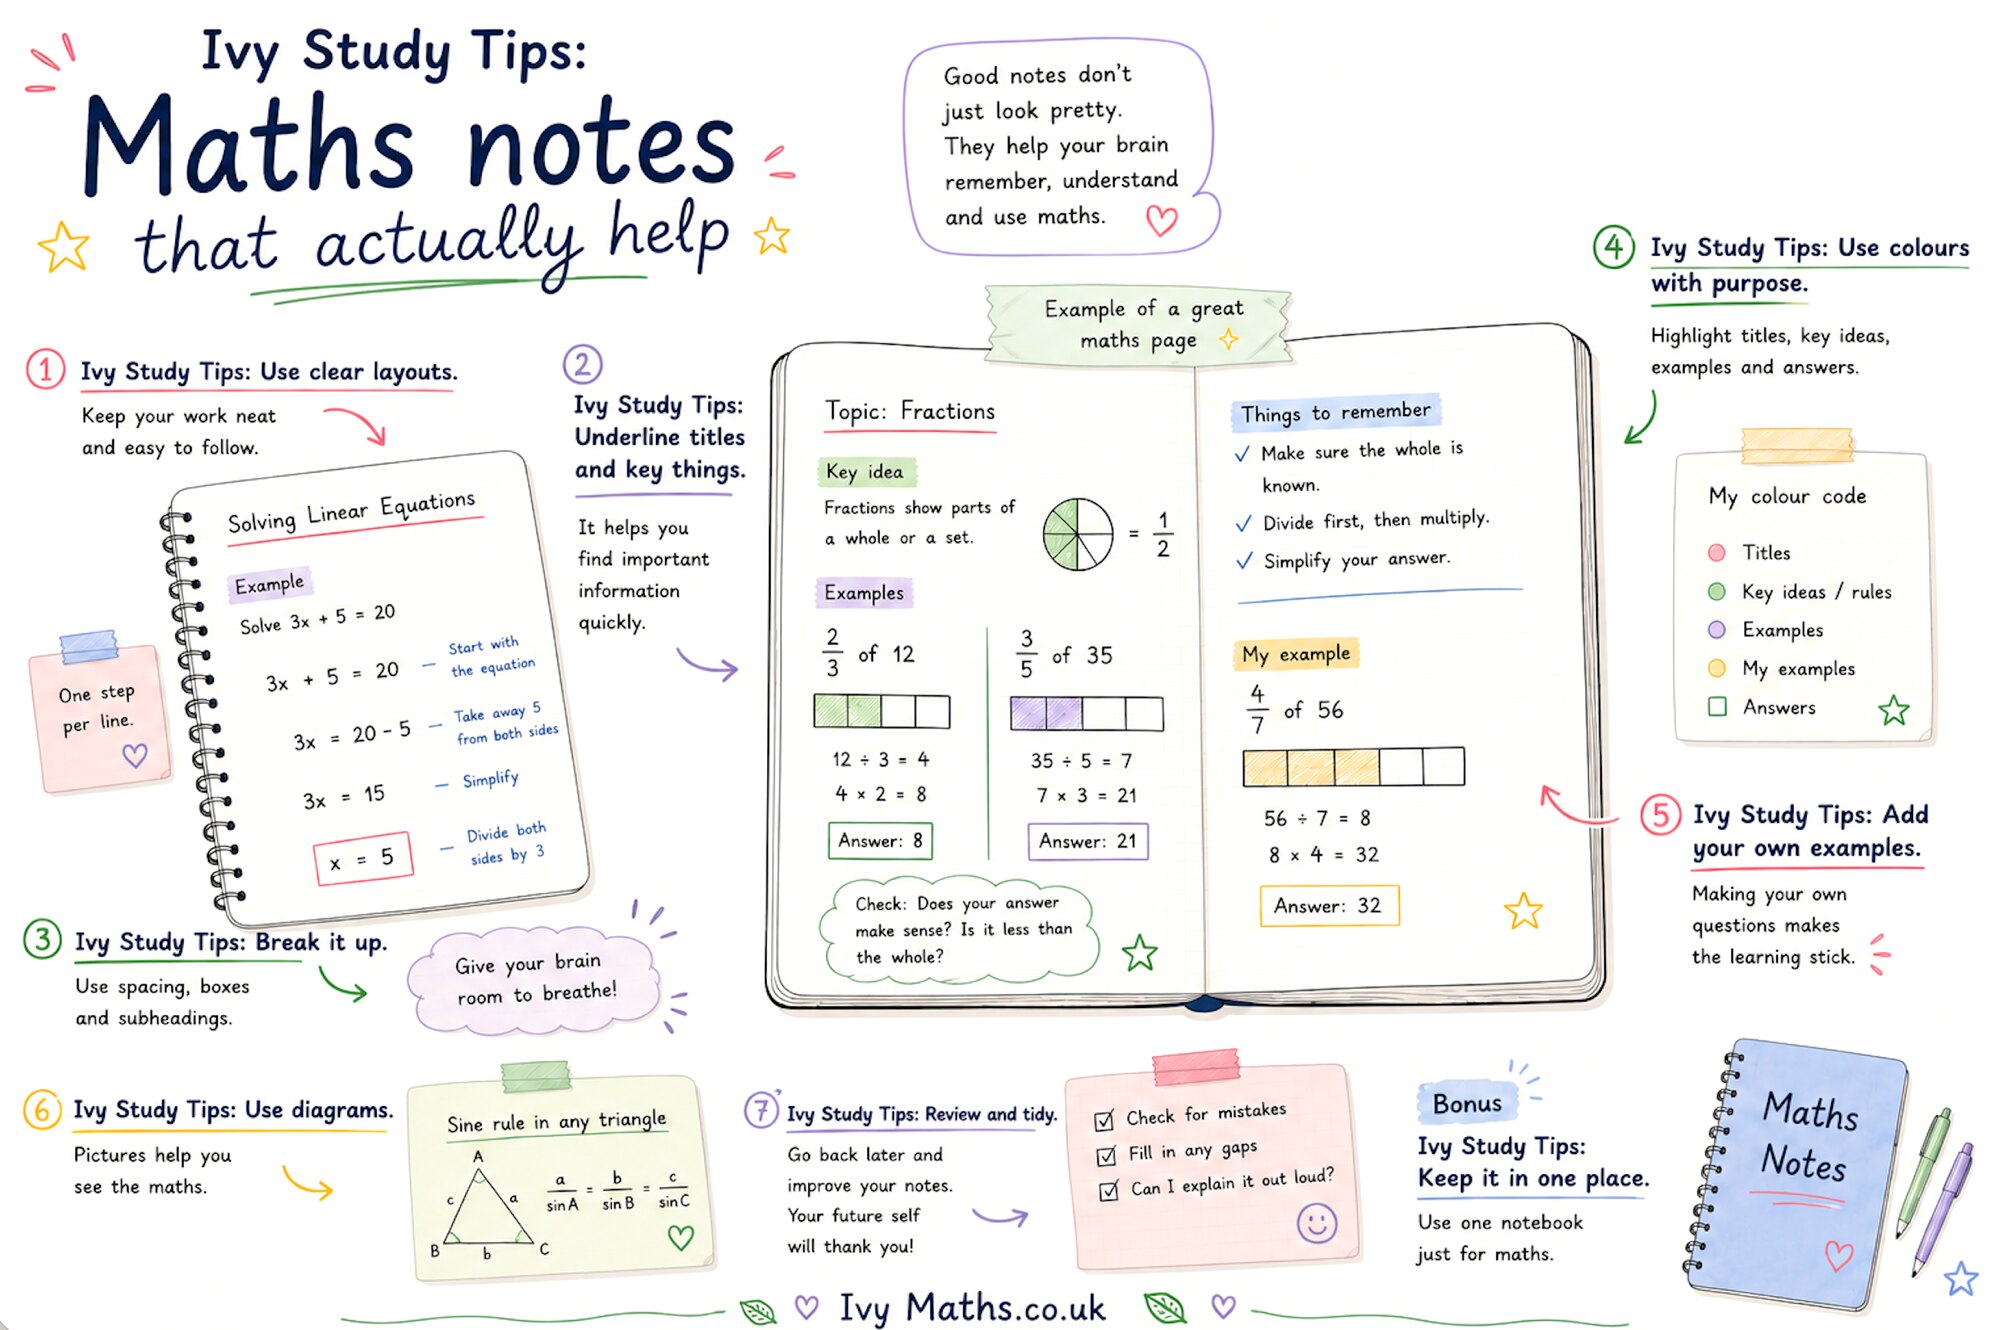 Ivy Study Tips:
Maths notes
that actually help
Good notes don't
just look pretty.
They help your brain
remember, understand
and use maths.
1
Ivy Study Tips: Use clear layouts.
Keep your work neat
and easy to follow.
One step
per line.
Solving Linear Equations
Example
Solve 3x + 5 = 20
3x + 5 = 20 — Start with
the equation
3x = 20 - 5 — Take away 5
from both sides
3x = 15 — Simplify
x = 5 — Divide both
sides by 3
2
Ivy Study Tips:
Underline titles
and key things.
It helps you
find important
information
quickly.
3
Ivy Study Tips: Break it up.
Use spacing, boxes
and subheadings.
Give your brain
room to breathe!
Example of a great
maths page
Topic: Fractions
Key idea
Fractions show parts of
a whole or a set.
= 1/2
Examples
2/3 of 12
12 ÷ 3 = 4
4 × 2 = 8
Answer: 8
3/5 of 35
35 ÷ 5 = 7
7 × 3 = 21
Answer: 21
Check: Does your answer
make sense? Is it less than
the whole?
Things to remember
✓ Make sure the whole is
known.
✓ Divide first, then multiply.
✓ Simplify your answer.
My example
4/7 of 56
56 ÷ 7 = 8
8 × 4 = 32
Answer: 32
4
Ivy Study Tips: Use colours
with purpose.
Highlight titles, key ideas,
examples and answers.
My colour code
Titles
Key ideas / rules
Examples
My examples
Answers
5
Ivy Study Tips: Add
your own examples.
Making your own
questions makes
the learning stick.
6
Ivy Study Tips: Use diagrams.
Pictures help you
see the maths.
Sine rule in any triangle
A
c
a
B
b
C
a/sin A = b/sin B = c/sin C
7
Ivy Study Tips: Review and tidy.
Go back later and
improve your notes.
Your future self
will thank you!
Check for mistakes
Fill in any gaps
Can I explain it out loud?
Bonus
Ivy Study Tips:
Keep it in one place.
Use one notebook
just for maths.
Maths
Notes
Ivy Maths.co.uk